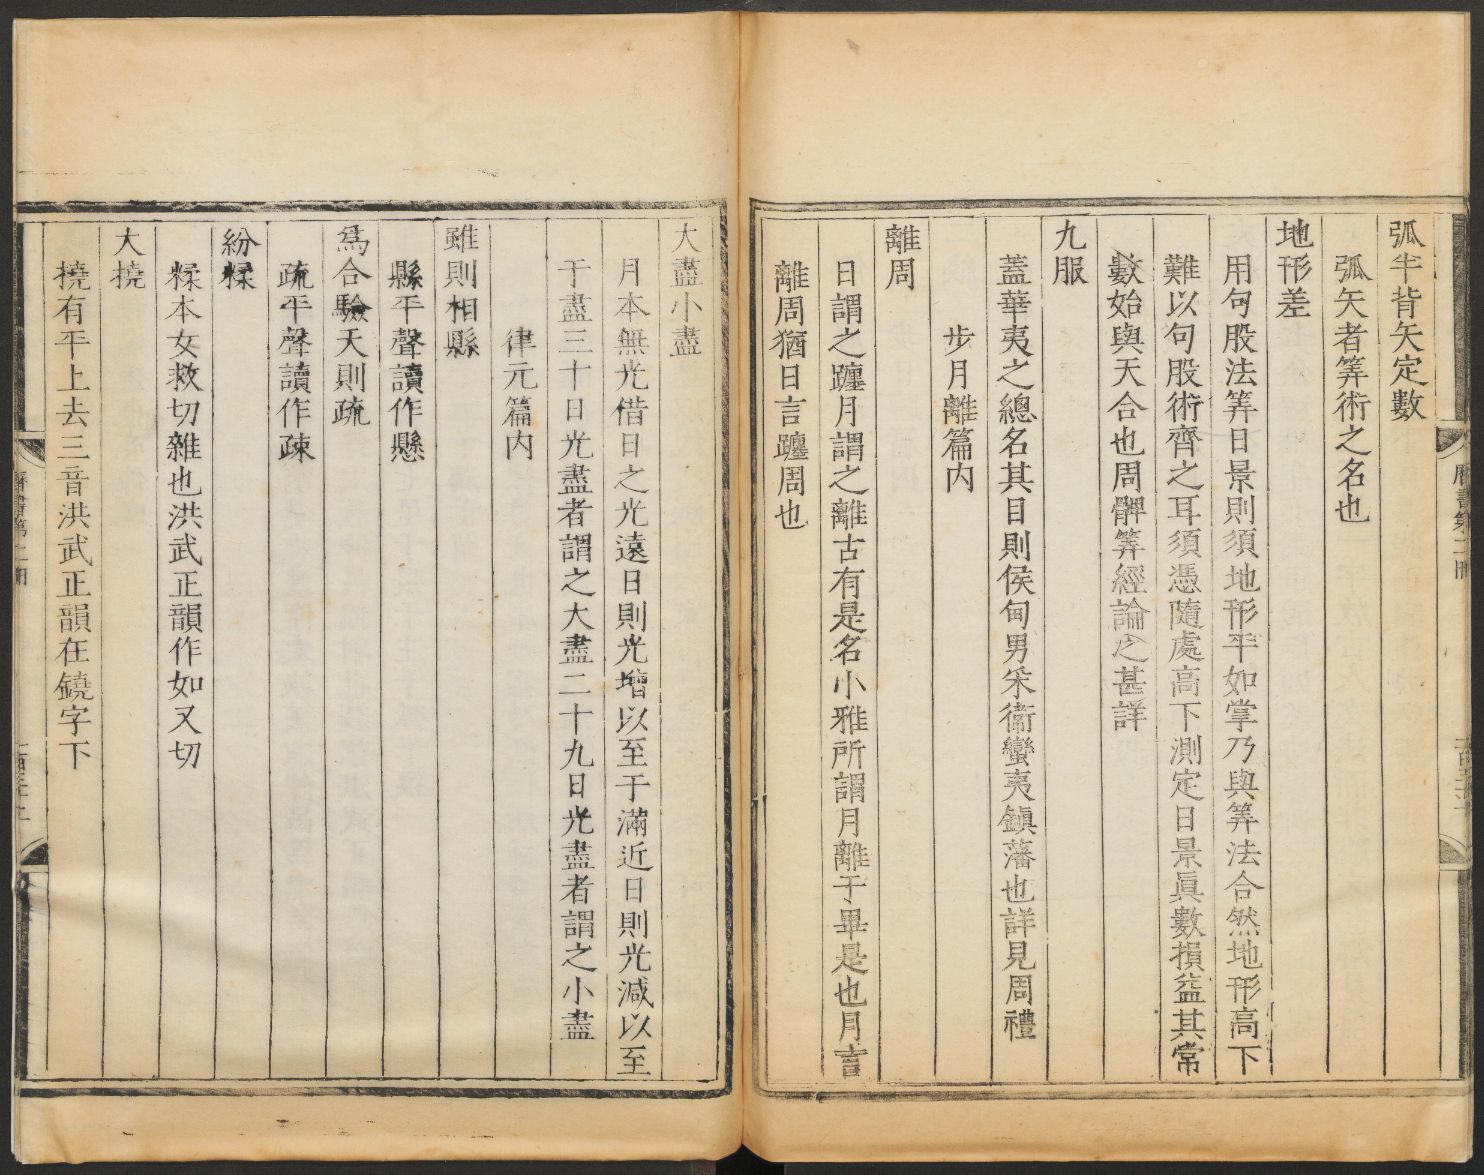 弧半背矢定數
弧矢者筭術之名也
地形差
用句股法筭日景則須地形平如掌乃與筭法合然地形高下
難以句股術齊之耳須憑隨處高下測定日景眞數損益其常
數始與天合也周髀筭經論之甚詳
九服
蓋華夷之總名其目則侯甸男采衛蠻夷鎭藩也詳見周禮
步月離篇内
離周
日謂之躔月謂之離古有是名小雅所謂月離于畢是也月言
離周猶日言躔周也
大盡小盡
月本無光借日之光遠日則光增以至于滿近日則光減以至
于盡三十日光盡者謂之大盡二十九日光盡者謂之小盡
律元篇内
雖則相縣
縣平聲讀作懸
爲合驗天則疏
疏平聲讀作疎
紛糅
糅本女救切雜也洪武正韻作如又切
大撓
撓有平上去三音洪武正韻在鐃字下